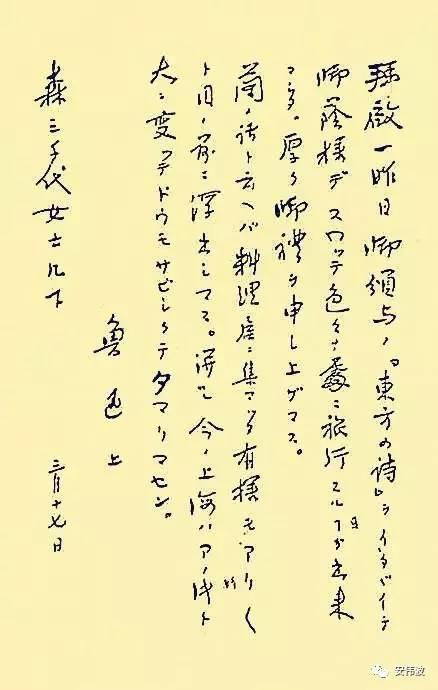 拝啓 一昨日御頒与ノ『東方の詩』ヲイタヾイテ
御蔭様デスワッテ色々ナ處ニ旅行スルコトガ出来
マシタ。厚ク御禮ヲ申シ上ゲマス。
蘭ノ話ト云ヘバ料理屋ニ集マッタ有様モアリ〱
ト目ノ前ニ浮出シマス。併シ今ノ上海ハアノ時ト
大ニ変ッテドウモサビシクテタマリマセン。
魯迅 上
三月十七日
森三千代女士几下
安伟波